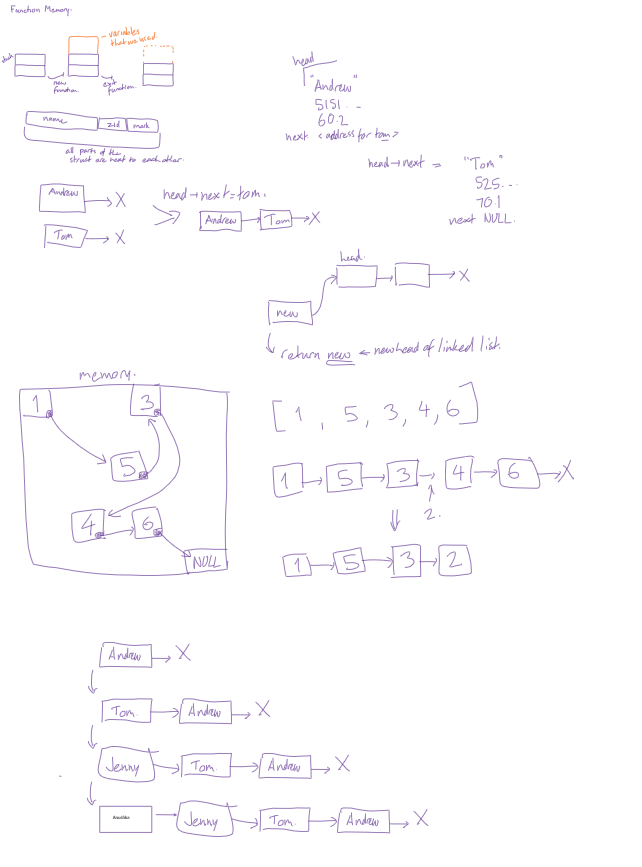 Function Memory.
- variables
that we used
stack
new
function.
exit
function.
name zid mark
all parts of the
struct are next to each other.
head
"Andrew"
5151...
60.2
next <address for tom>
head→next = "Tom"
525...
70.1
next NULL.
Andrew → X
Tom → X
head→next = tom.
Andrew → Tom → X
head.
new
→ X
return new ← new head of linked list.
memory.
1 3
5
4 6
NULL
[1, 5, 3, 4, 6]
1 → 5 → 3 → 4 → 6 → X
2.
1 → 5 → 3 → 2
Andrew → X
Tom → Andrew → X
Jenny → Tom. → Andrew → X
→ Jenny → Tom. → Andrew → X